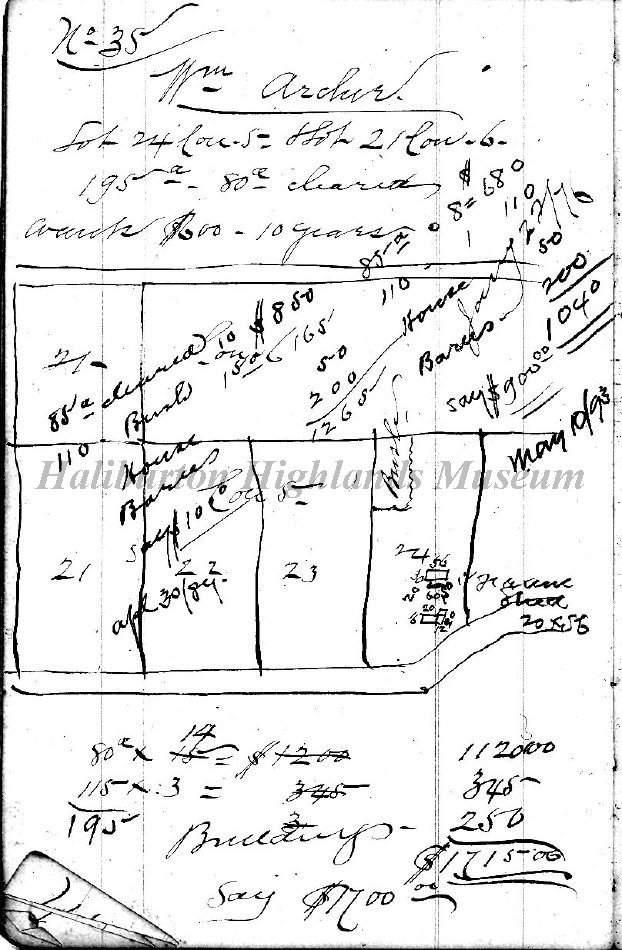 No. 35
Wm Archer.
Lot 24 Con. 5 & Lot 21 Con. 6.
195 a - 80 a cleared
wants $600 - 10 years
85 a 8 = 680
110 - 1 110
House 50
Barns 200
1040
say $900.00
May 10/93
21
Con 6
85 a cleared 10 $850
110 Bush 1.50 165
House 50
Barns 200
1265
say $10
apl 30/89.
Con 5
Bush
21
22
23
24
56
20
6
20
frame
shed
20 x 56
80 a x 14 15 = $1200 1120.00
115 x 3 = 345 345
195
Buildings - 250
$1715.00
Say $1700.00
Haliburton Highlands Museum